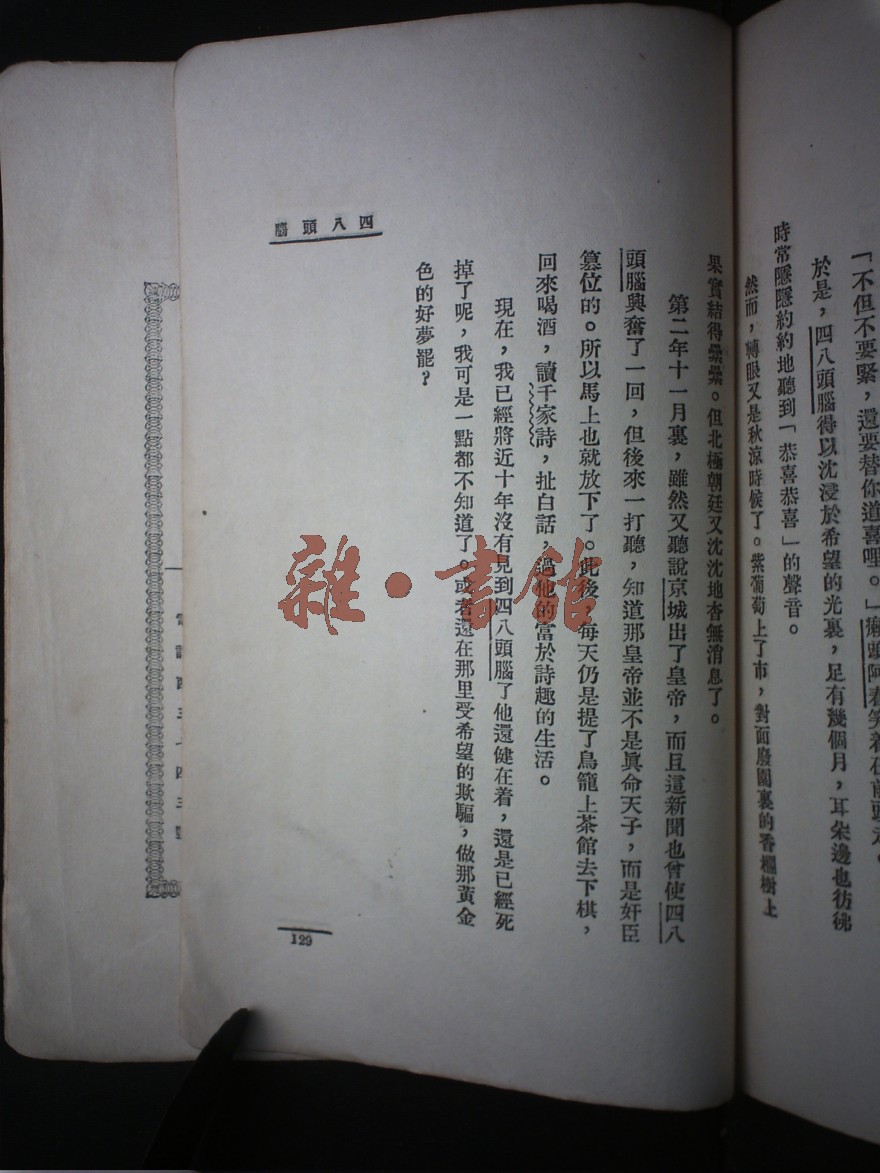 「不但不要緊，還要替你道喜哩。」癩頭阿春笑着在前頭走。
於是，四八頭腦得以沈浸於希望的光裏，足有幾個月，耳朵邊也彷彿
時常隱隱約約地聽到「恭喜恭喜」的聲音。
然而，轉眼又是秋涼時候了。紫葡萄上了市，對面廢園裏的香櫞樹上
果實結得纍纍。但北極朝廷又沈沈地杳無消息了。
第二年十一月裏，雖然又聽說京城出了皇帝，而且這新聞也曾使四八
頭腦興奮了一回，但後來一打聽，知道那皇帝並不是眞命天子，而是奸臣
篡位的。所以馬上也就放下了。此後，每天仍是提了鳥籠上茶館去下棋，
回來喝酒，讀千家詩，扯白話，過他的富於詩趣的生活。
現在，我已經將近十年沒有見到四八頭腦了他還健在着，還是已經死
掉了呢，我可是一點都不知道了。或者還在那里受希望的欺騙，做那黃金
色的好夢罷？
四八頭腦
129
雜·書館